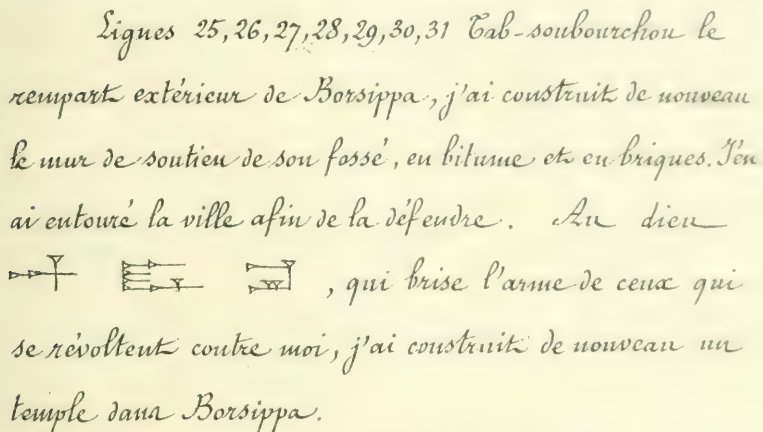 Lignes 25, 26, 27, 28, 29, 30, 31 Tab-soubourchou le
rempart extérieur de Borsippa, j'ai construit de nouveau
le mur de soutien de son fossé, en bitume et en briques. J'en
ai entouré la ville afin de la défendre. Au dieu
𒀭 , qui brise l'arme de ceux qui
se révoltent contre moi, j'ai construit de nouveau un
temple dans Borsippa.